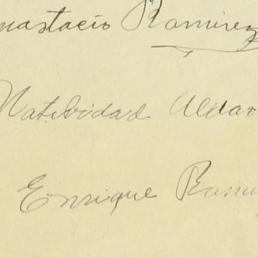 nastacio Ramirez
Natibidad Aldar
Enrique Rami